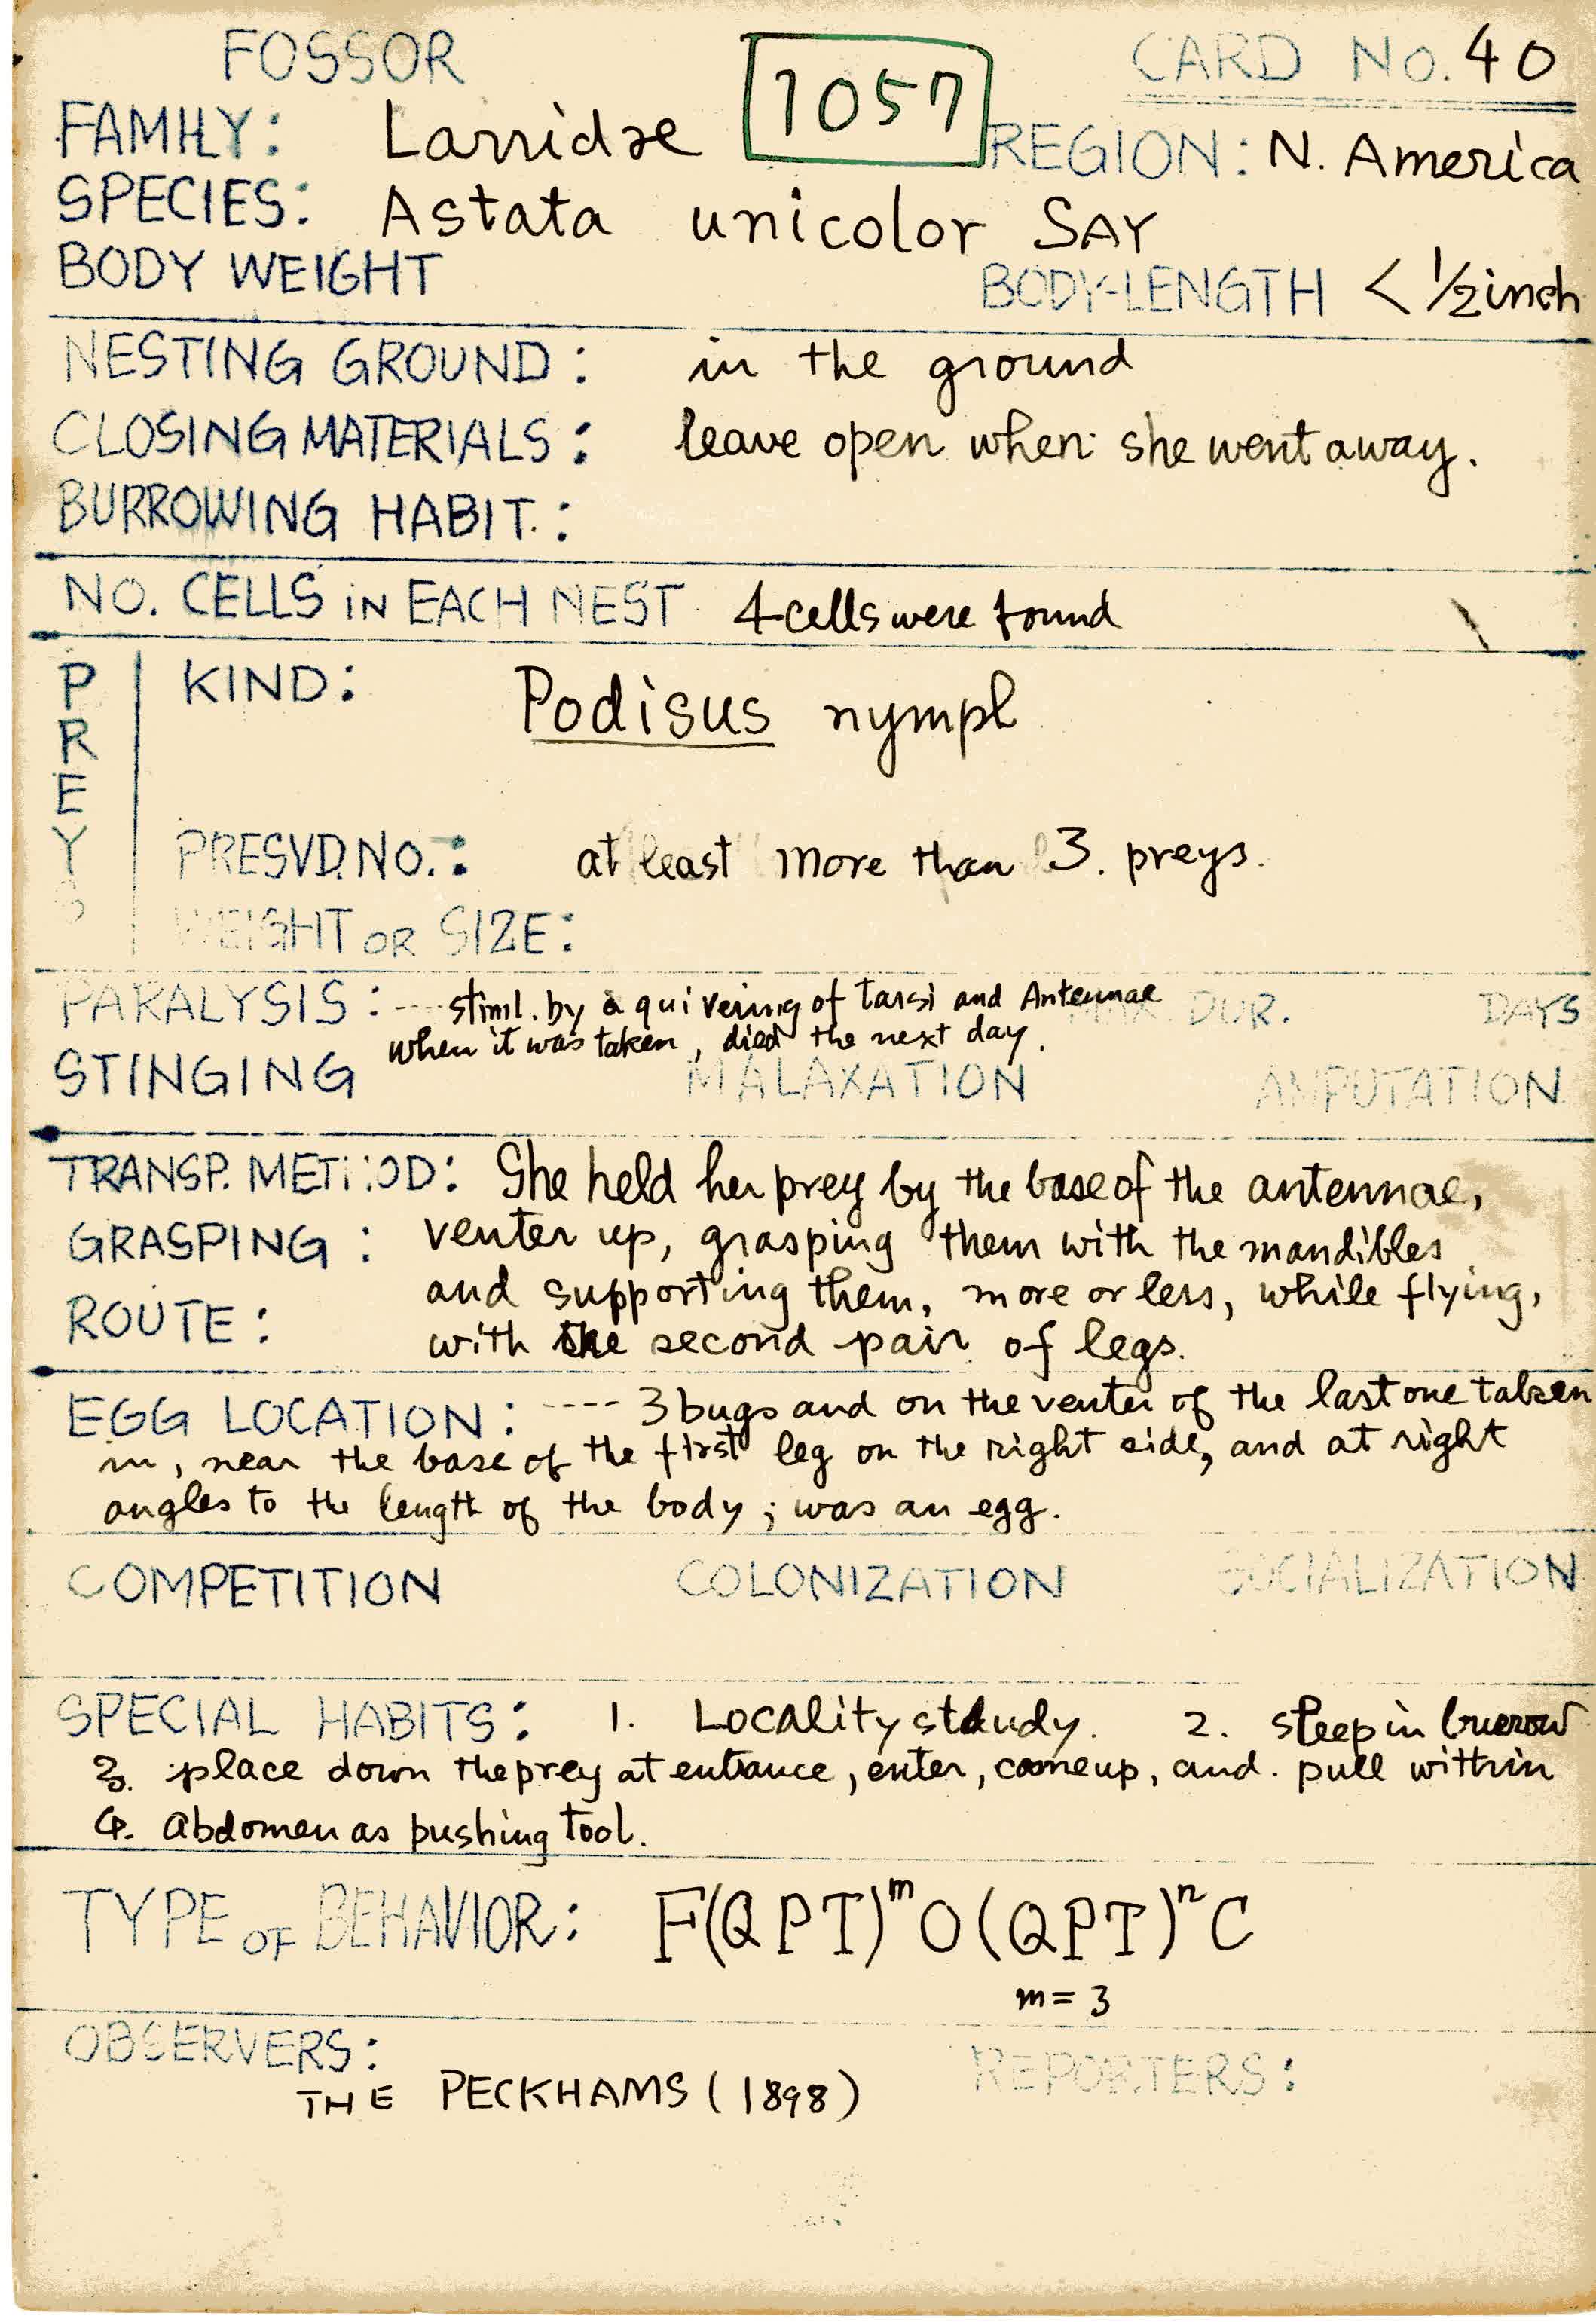 FOSSOR 1057 CARD No. 40
FAMILY: Larridae REGION: N. America
SPECIES: Astata unicolor SAY
BODY WEIGHT BODY-LENGTH < 1/2 inch
NESTING GROUND: in the ground
CLOSING MATERIALS: leave open when she went away.
BURROWING HABIT.:
NO. CELLS iN EACH NEST 4 cells were found
PREYS
KIND: Podisus nympl
PRESVD. NO.: at least more than 3. preys.
WEIGHT OR SIZE:
PARALYSIS: ---- stiml. by a quivering of tarsi and Antennae MAX. DUR. DAYS
when it was taken, died the next day.
STINGING MALAXATION AMPUTATION
TRANSP. METHOD: She held her prey by the base of the antennae,
GRASPING: venter up, grasping them with the mandibles
and supporting them, more or less, while flying,
ROUTE: with the second pair of legs.
EGG LOCATION: ---- 3 bugs and on the venter of the last one taken
in, near the base of the first leg on the right side, and at right
angles to the length of the body; was an egg.
COMPETITION COLONIZATION SOCIALIZATION
SPECIAL HABITS: 1. Locality study. 2. sleep in burrow
3. place down the prey at entrance, enter, come up, and. pull within
4. Abdomen as pushing tool.
TYPE OF BEHAVIOR: F(QPT)ᵐO(QPT)ⁿC
m = 3
OBSERVERS: REPORTERS:
THE PECKHAMS (1898)